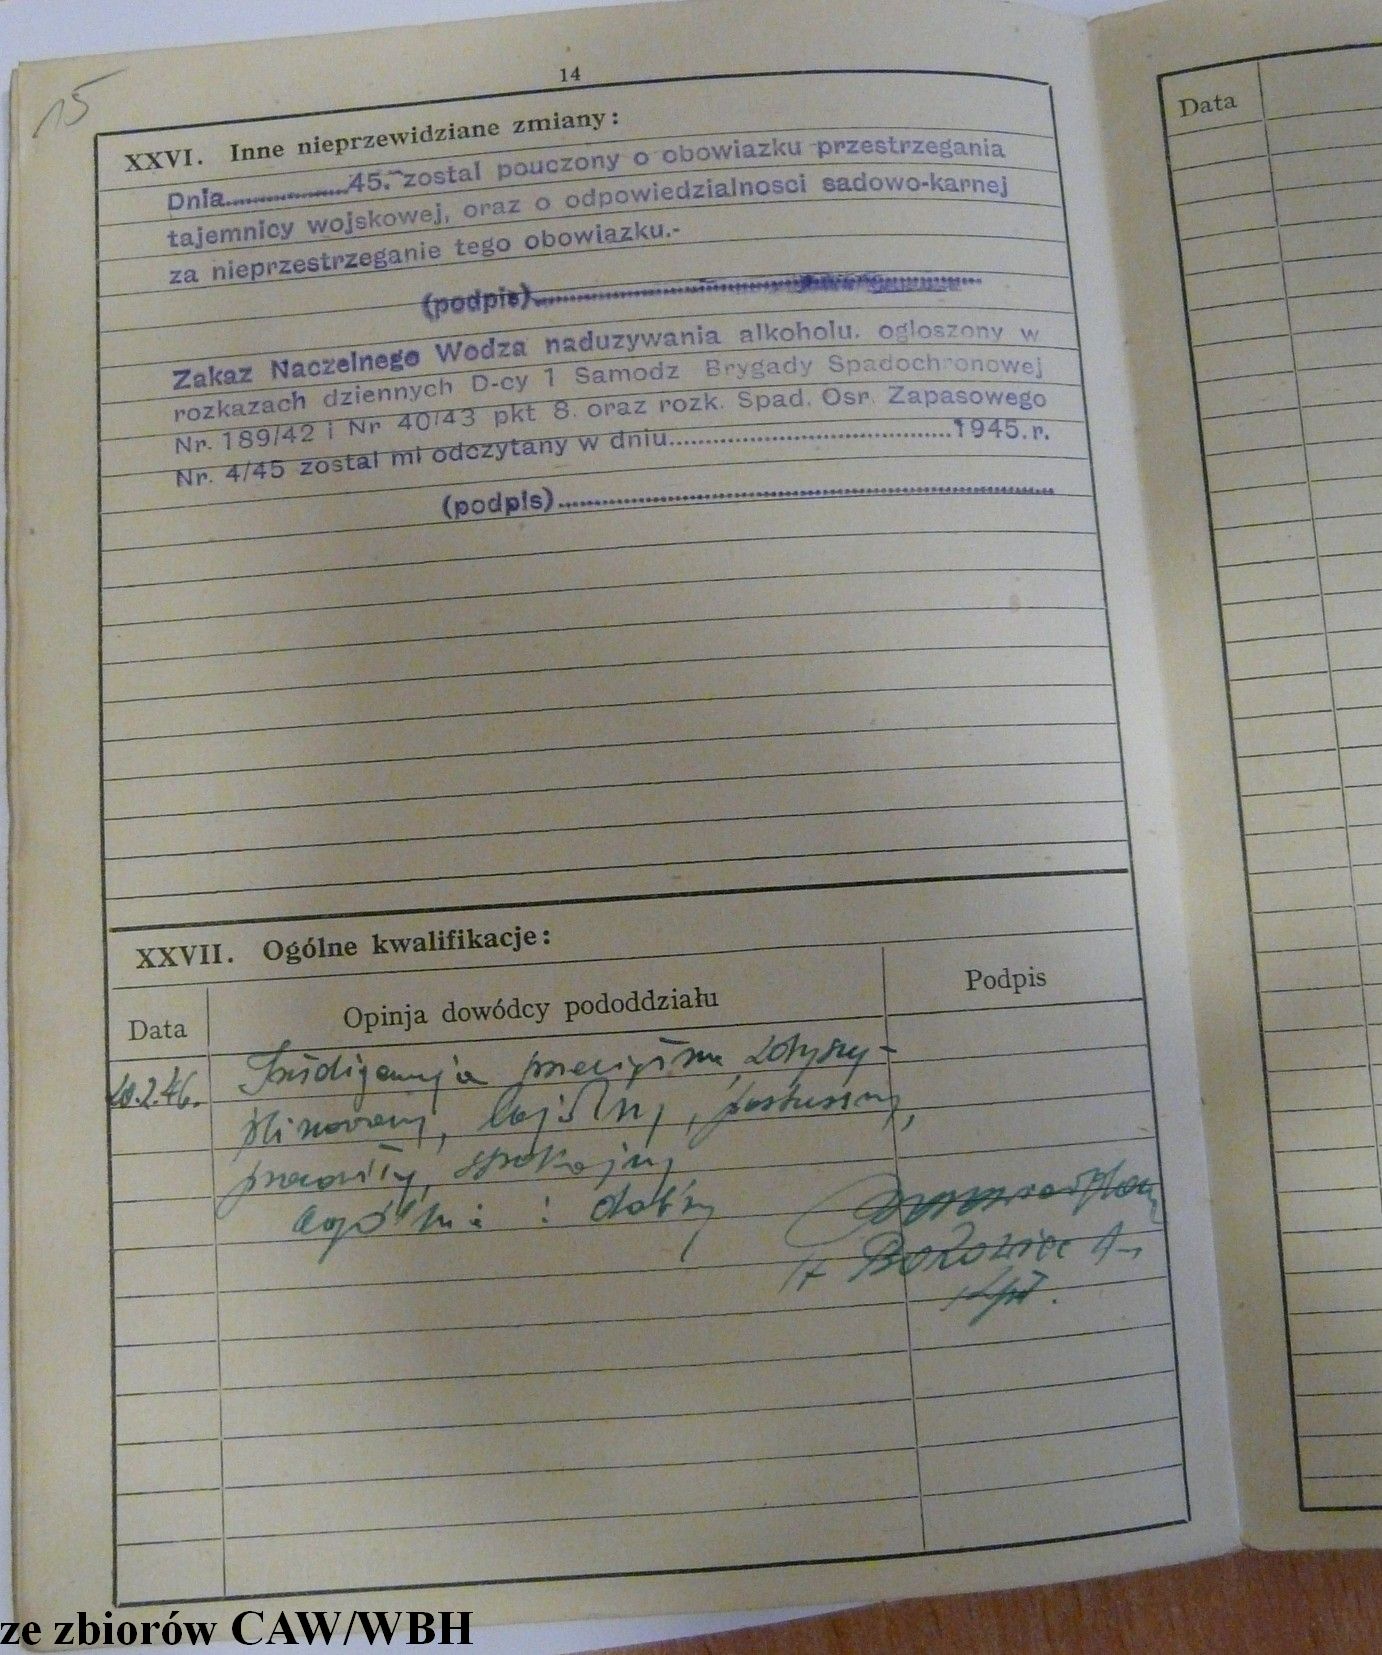 15
14
XXVI. Inne nieprzewidziane zmiany:
Dnia..................45.- zostal pouczony o obowiazku przestrzegania
tajemnicy wojskowej, oraz o odpowiedzialnosci sadowo-karnej
za nieprzestrzeganie tego obowiazku.-
(podpis)..................
Zakaz Naczelnego Wodza naduzywania alkoholu. ogloszony w
rozkazach dziennych D-cy 1 Samodz Brygady Spadochronowej
Nr. 189/42 i Nr 40/43 pkt 8. oraz rozk. Spad. Osr. Zapasowego
Nr. 4/45 zostal mi odczytany w dniu..................1945.r.
(podpis)..................
XXVII. Ogólne kwalifikacje:
Data
Opinja dowódcy pododdziału
Podpis
20.2.46.
lojalny, posłuszny,
pracowity, spokojny
ogólnie : dobry
Borowiec A
kpt.
Data
ze zbiorów CAW/WBH